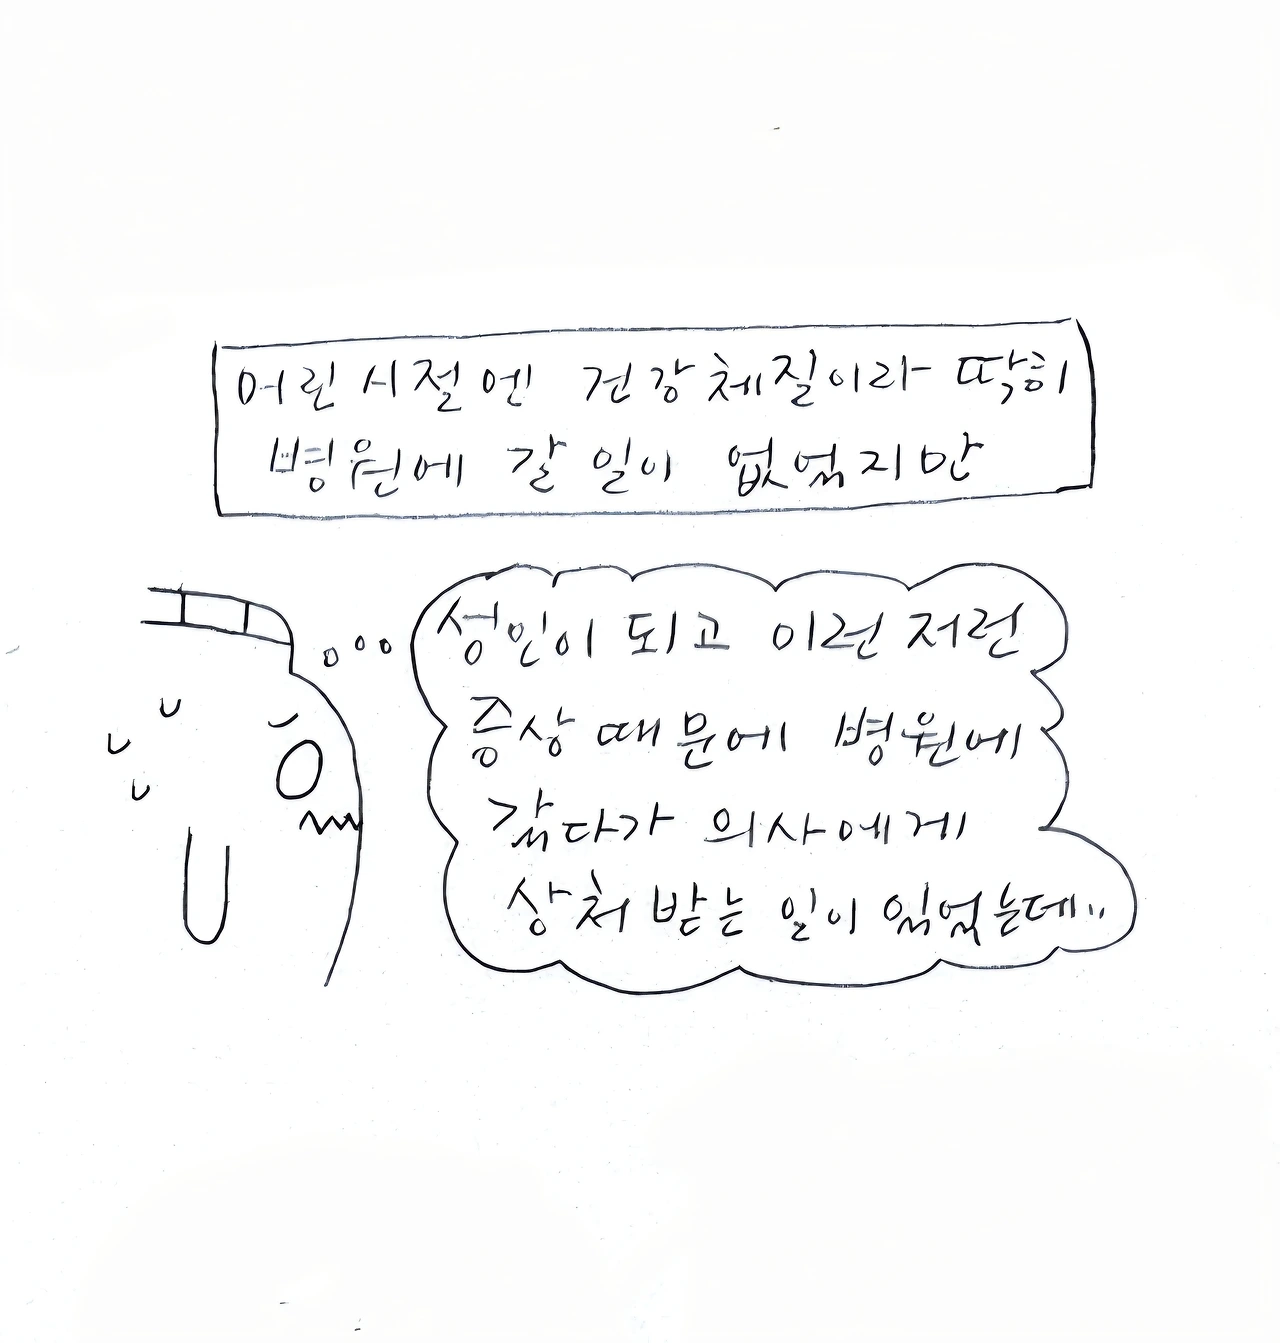 어린시절엔 건강체질이라 딱히
병원에 갈 일이 없었지만
성인이 되고 이런 저런
증상 때문에 병원에
갔다가 의사에게
상처 받는 일이 있었는데..